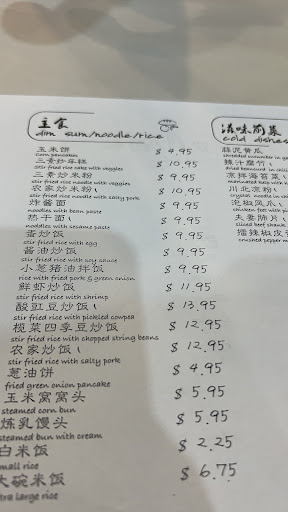 主食
dim sum/noodle/rice
玉米饼 $ 4.95
corn pancakes
三素炒年糕 $ 10.95
stir fried rice cake with veggies
三素炒米粉 $ 9.95
stir fried rice noodle with veggies
农家炒米粉 $ 10.95
stir fried rice noodle with salty pork
炸酱面 $ 9.95
noodles with bean paste
热干面 $ 9.95
noodles with sesame paste
蛋炒饭 $ 9.95
stir fried rice with egg
酱油炒饭 $ 9.95
stir fried rice with soy sauce
小葱猪油拌饭 $ 9.95
rice with fried pork & green onion
鲜虾炒饭 $ 11.95
stir fried rice with shrimp
酸豇豆炒饭 $ 13.95
stir fried rice with pickled cowpea
榄菜四季豆炒饭 $ 12.95
stir fried rice with chopped string beans
农家炒饭 $ 12.95
stir fried rice with salty pork
葱油饼 $ 4.95
fried green onion pancake
玉米窝窝头 $ 5.95
steamed corn bun
炼乳馒头 $ 5.95
steamed bun with cream
白米饭 $ 2.25
small rice
大碗米饭 $ 6.75
extra large rice
滋味凉菜
cold dishes
蒜泥黄瓜
shredded cucumber in
辣汁腐竹
dried beancurd in
凉拌海苔菜
川北凉粉
泡椒凤爪
夫妻肺片
sliced beef shank
擂辣椒皮
crushed pepper